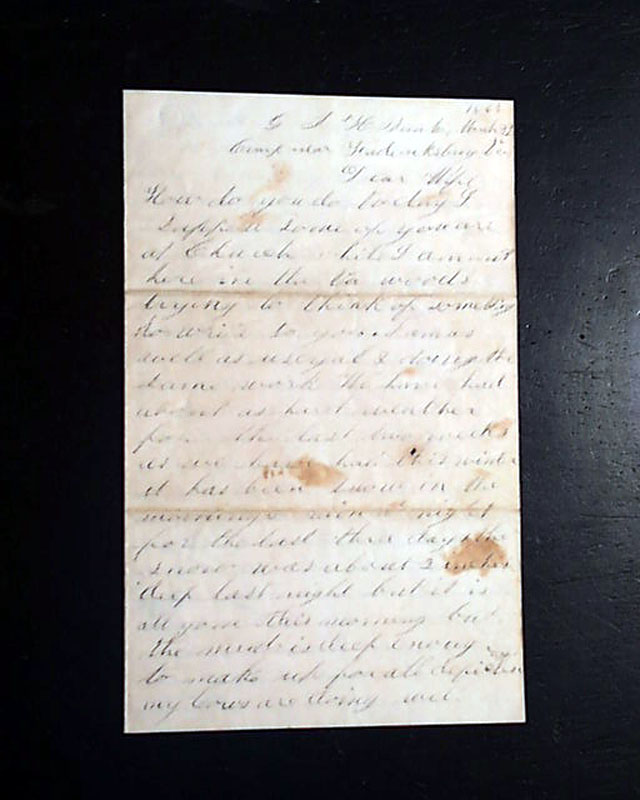 1863
G S H March
Camp near Fredericksburg Va
Dear Wife
How do you do today I
suppose some of you are
at Church while I am out
here in the Va woods
trying to think of something
to write to you I am as
well as usyal & doing the
same work We have had
about as weather
for the last two weeks
as we have had this winter
it has been snow in the
morning & rain at night
for the last three days the
snow was about 2 inches
deep last night but it is
all gone this morning but
the mud is deep enoug
to make up for all
my are doing wel